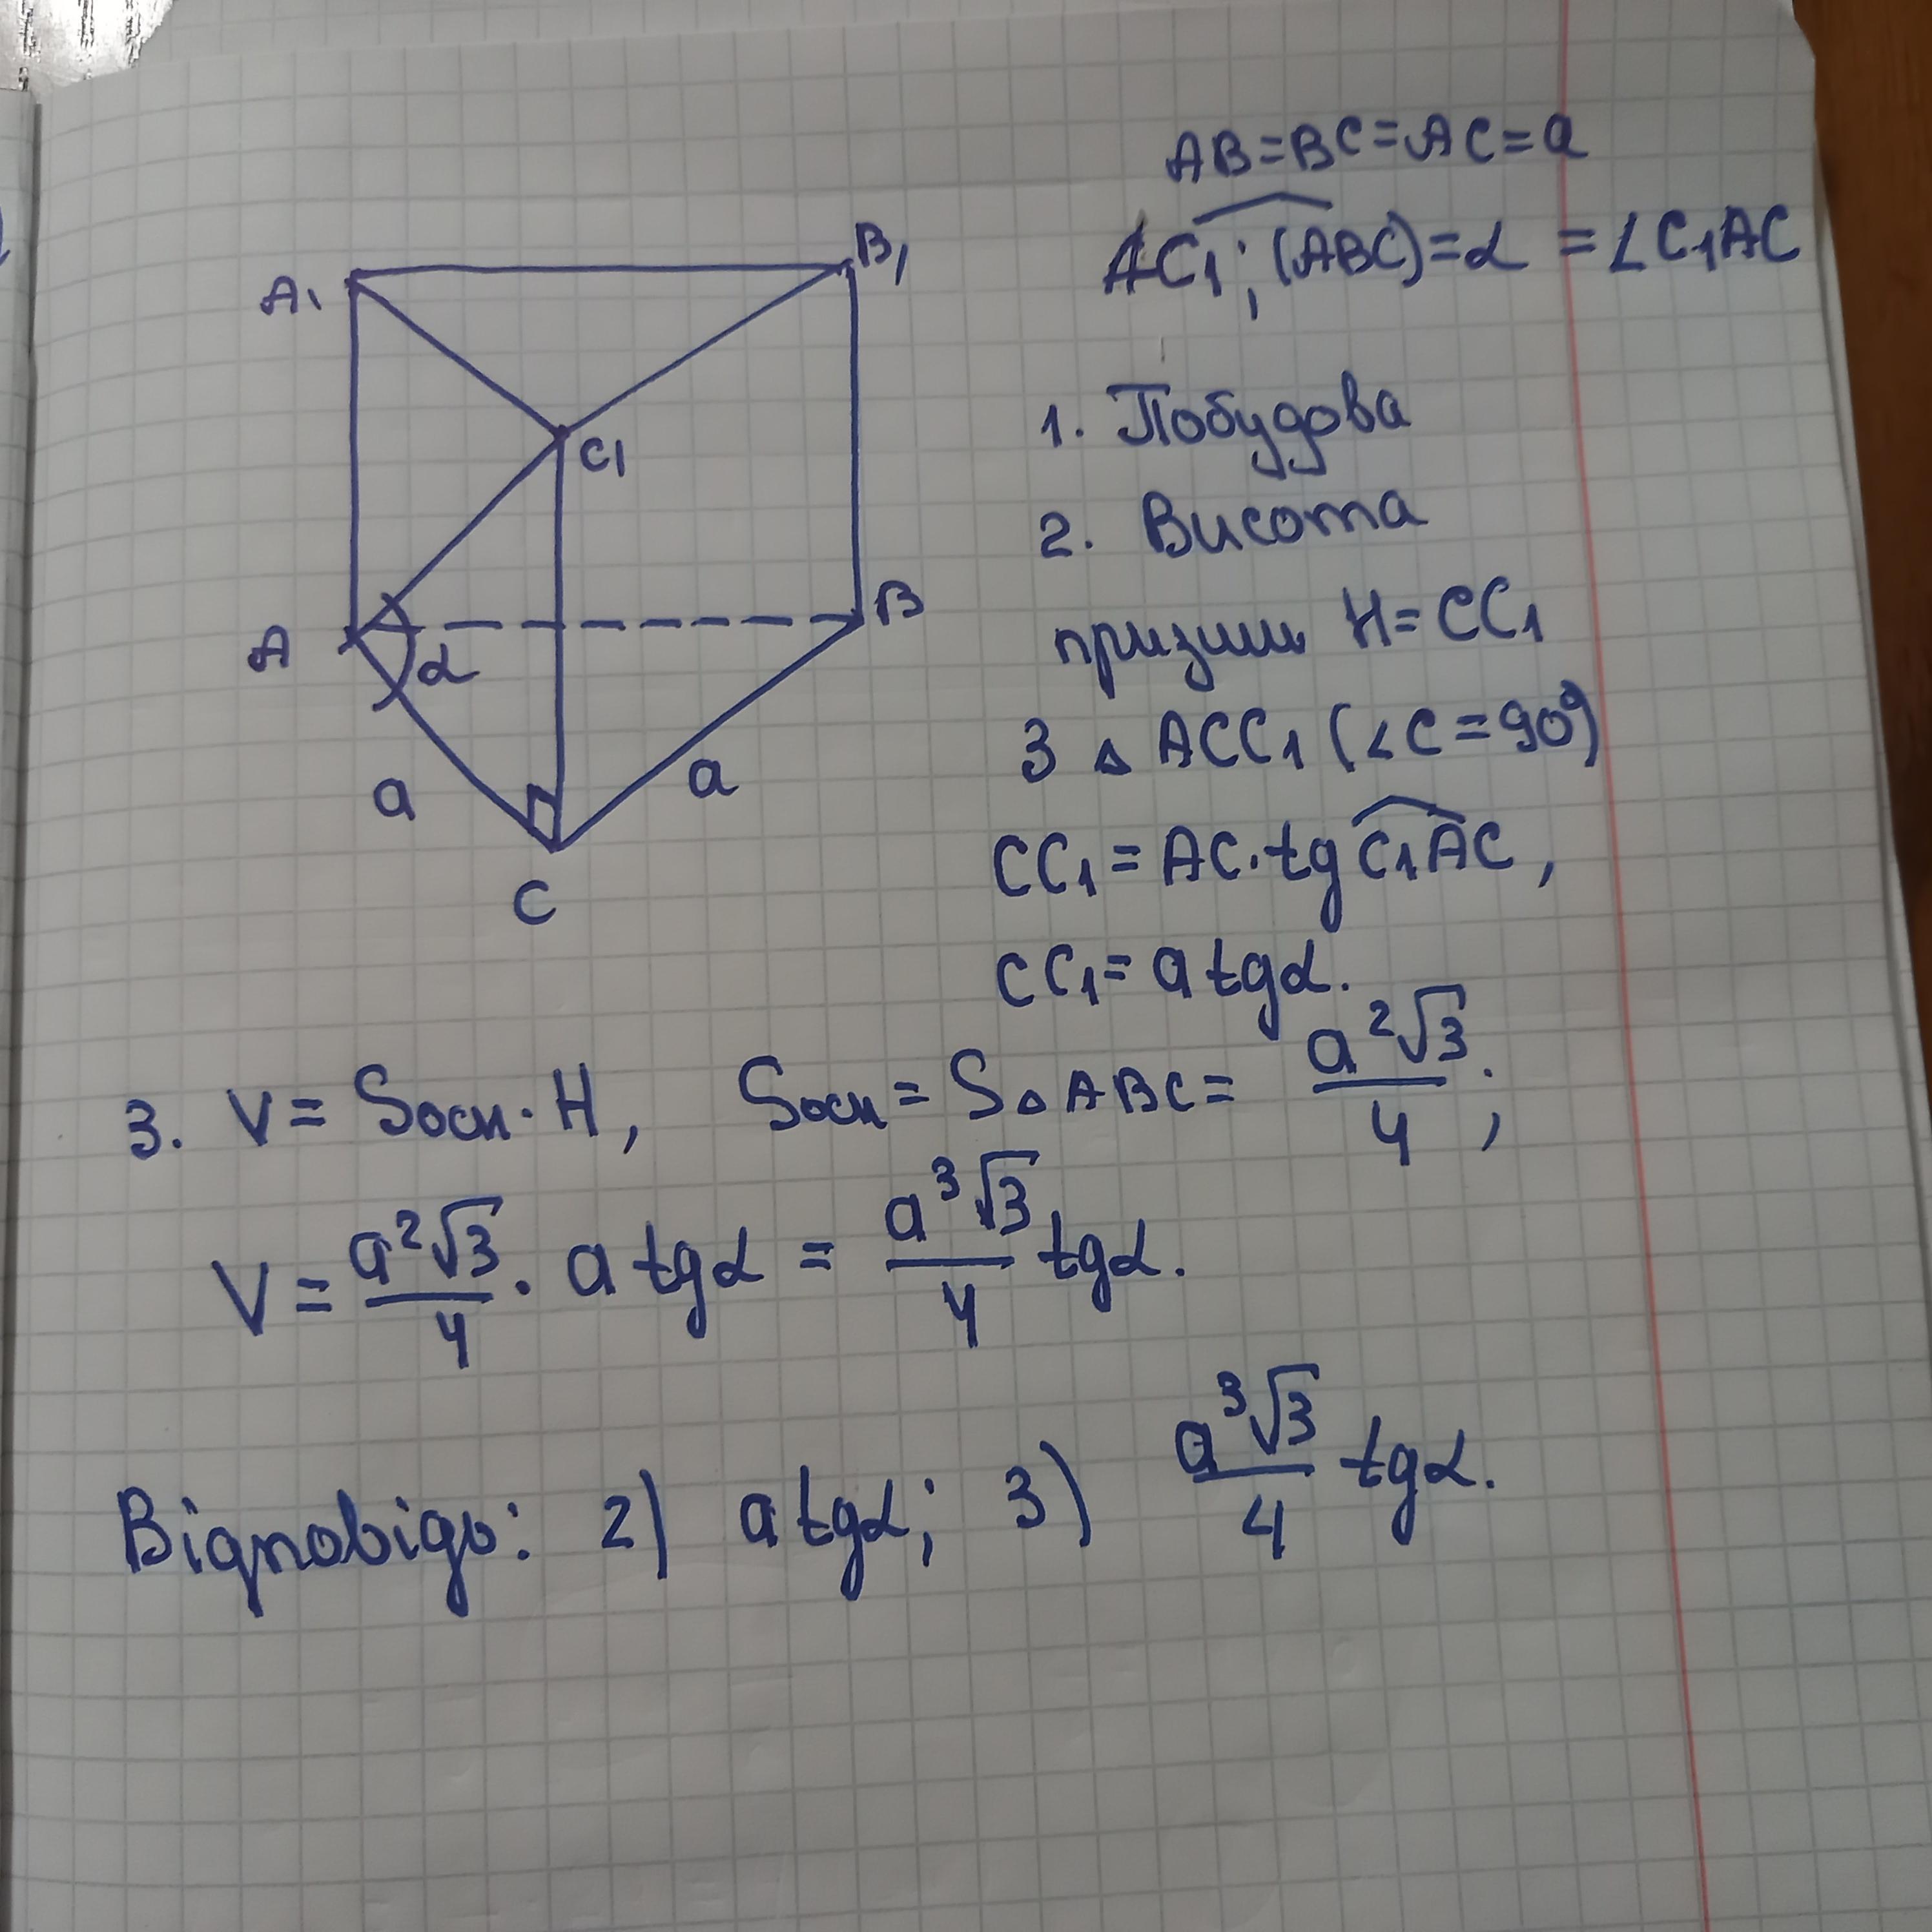 AB=BC=AC=a
AC₁; (ABC)=α =∠C₁AC
A₁
B₁
C₁
A
B
α
a
a
C
1. Побудова
2. Висота
призми H=CC₁
З △ ACC₁ (∠C=90°)
CC₁=AC·tg C₁AC,
CC₁=a tgα.
3. V= Sосн·H, Sосн=S△ABC= a²√3/4;
V= a²√3/4 · a tgα = a³√3/4 tgα.
Відповідь: 2) a tgα; 3) a³√3/4 tgα.